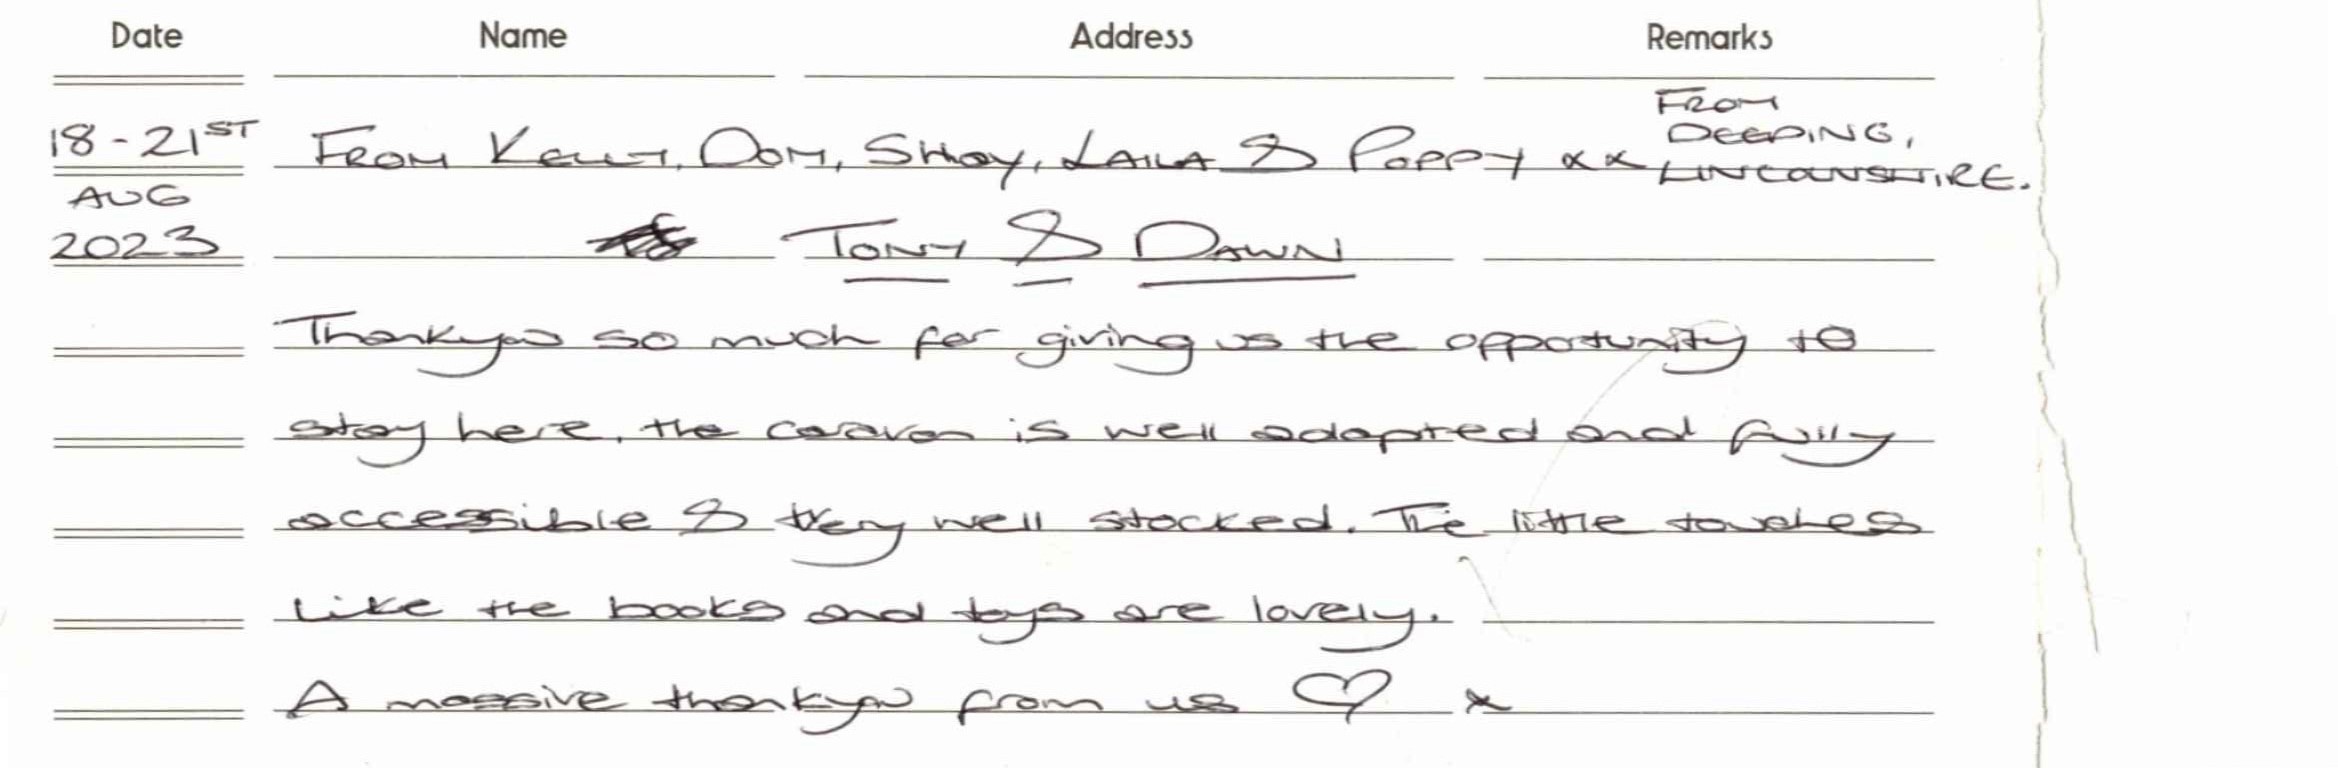 Date Name Address Remarks
18-21ST From Kelly, Dom, Shay, Laila & Poppy xx FROM DEEPING, LINCOLNSHIRE.
AUG
2023 TONY & DAWN
Thankyou so much for giving us the opportunity to
stay here, the caravan is well adapted and fully
accessible & very well stocked. The little touches
like the books and toys are lovely.
A massive thankyou from us ♡ x